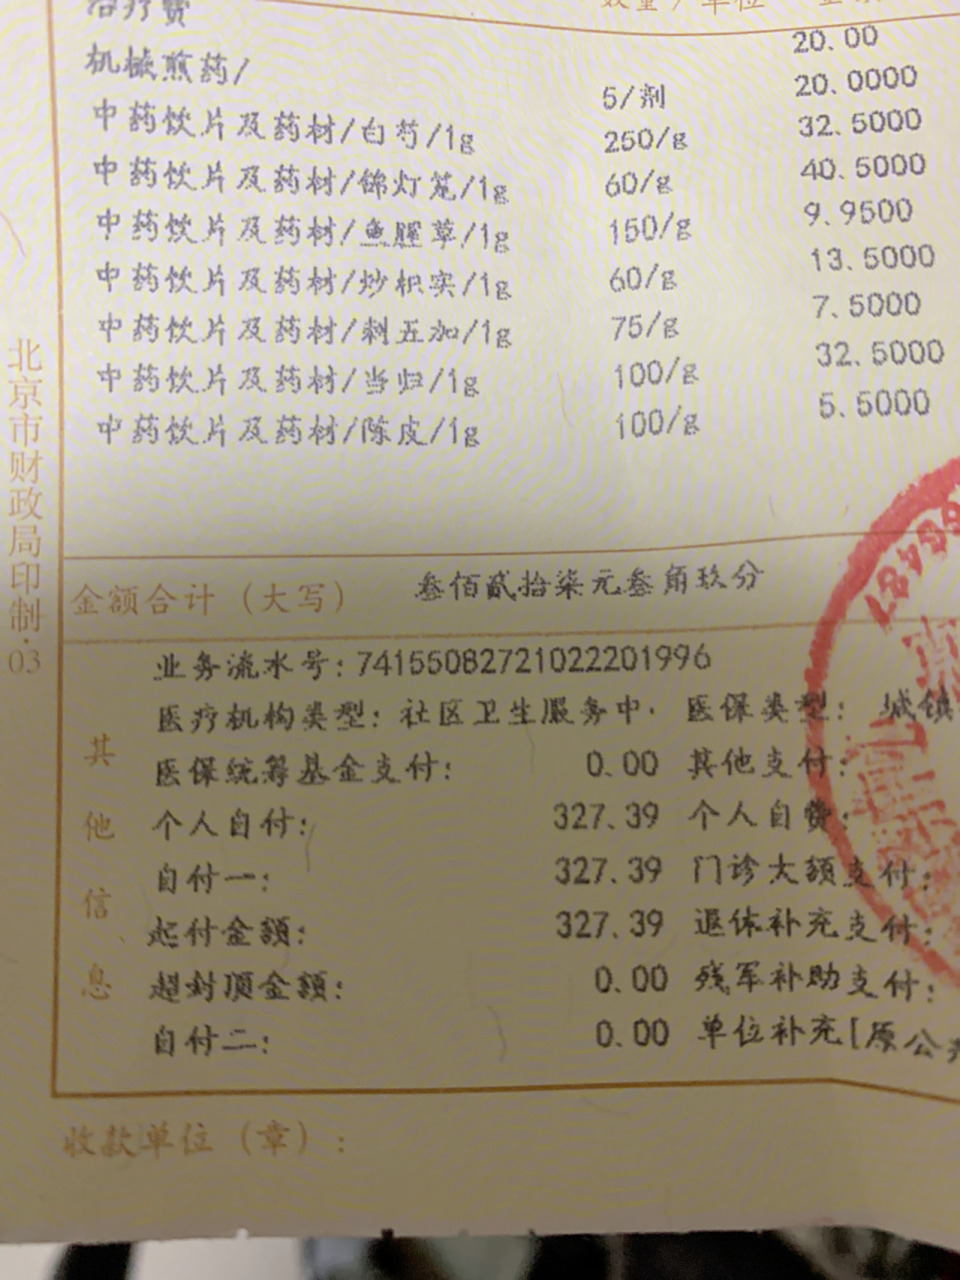 治疗费 数量/单位
20.00
机械煎药/ 5/剂 20.0000
中药饮片及药材/白芍/1g 250/g 32.5000
中药饮片及药材/锦灯笼/1g 60/g 40.5000
中药饮片及药材/鱼腥草/1g 150/g 9.9500
中药饮片及药材/炒枳实/1g 60/g 13.5000
中药饮片及药材/刺五加/1g 75/g 7.5000
中药饮片及药材/当归/1g 100/g 32.5000
中药饮片及药材/陈皮/1g 100/g 5.5000
北京市财政局印制·03
金额合计（大写） 叁佰贰拾柒元叁角玖分
其他信息
业务流水号:74155082721022201996
医疗机构类型: 社区卫生服务中· 医保类型: 城镇
医保统筹基金支付: 0.00 其他支付:
个人自付: 327.39 个人自费:
自付一: 327.39 门诊大额支付:
起付金额: 327.39 退休补充支付:
超封顶金额: 0.00 残军补助支付:
自付二: 0.00 单位补充[原公
收款单位（章）: